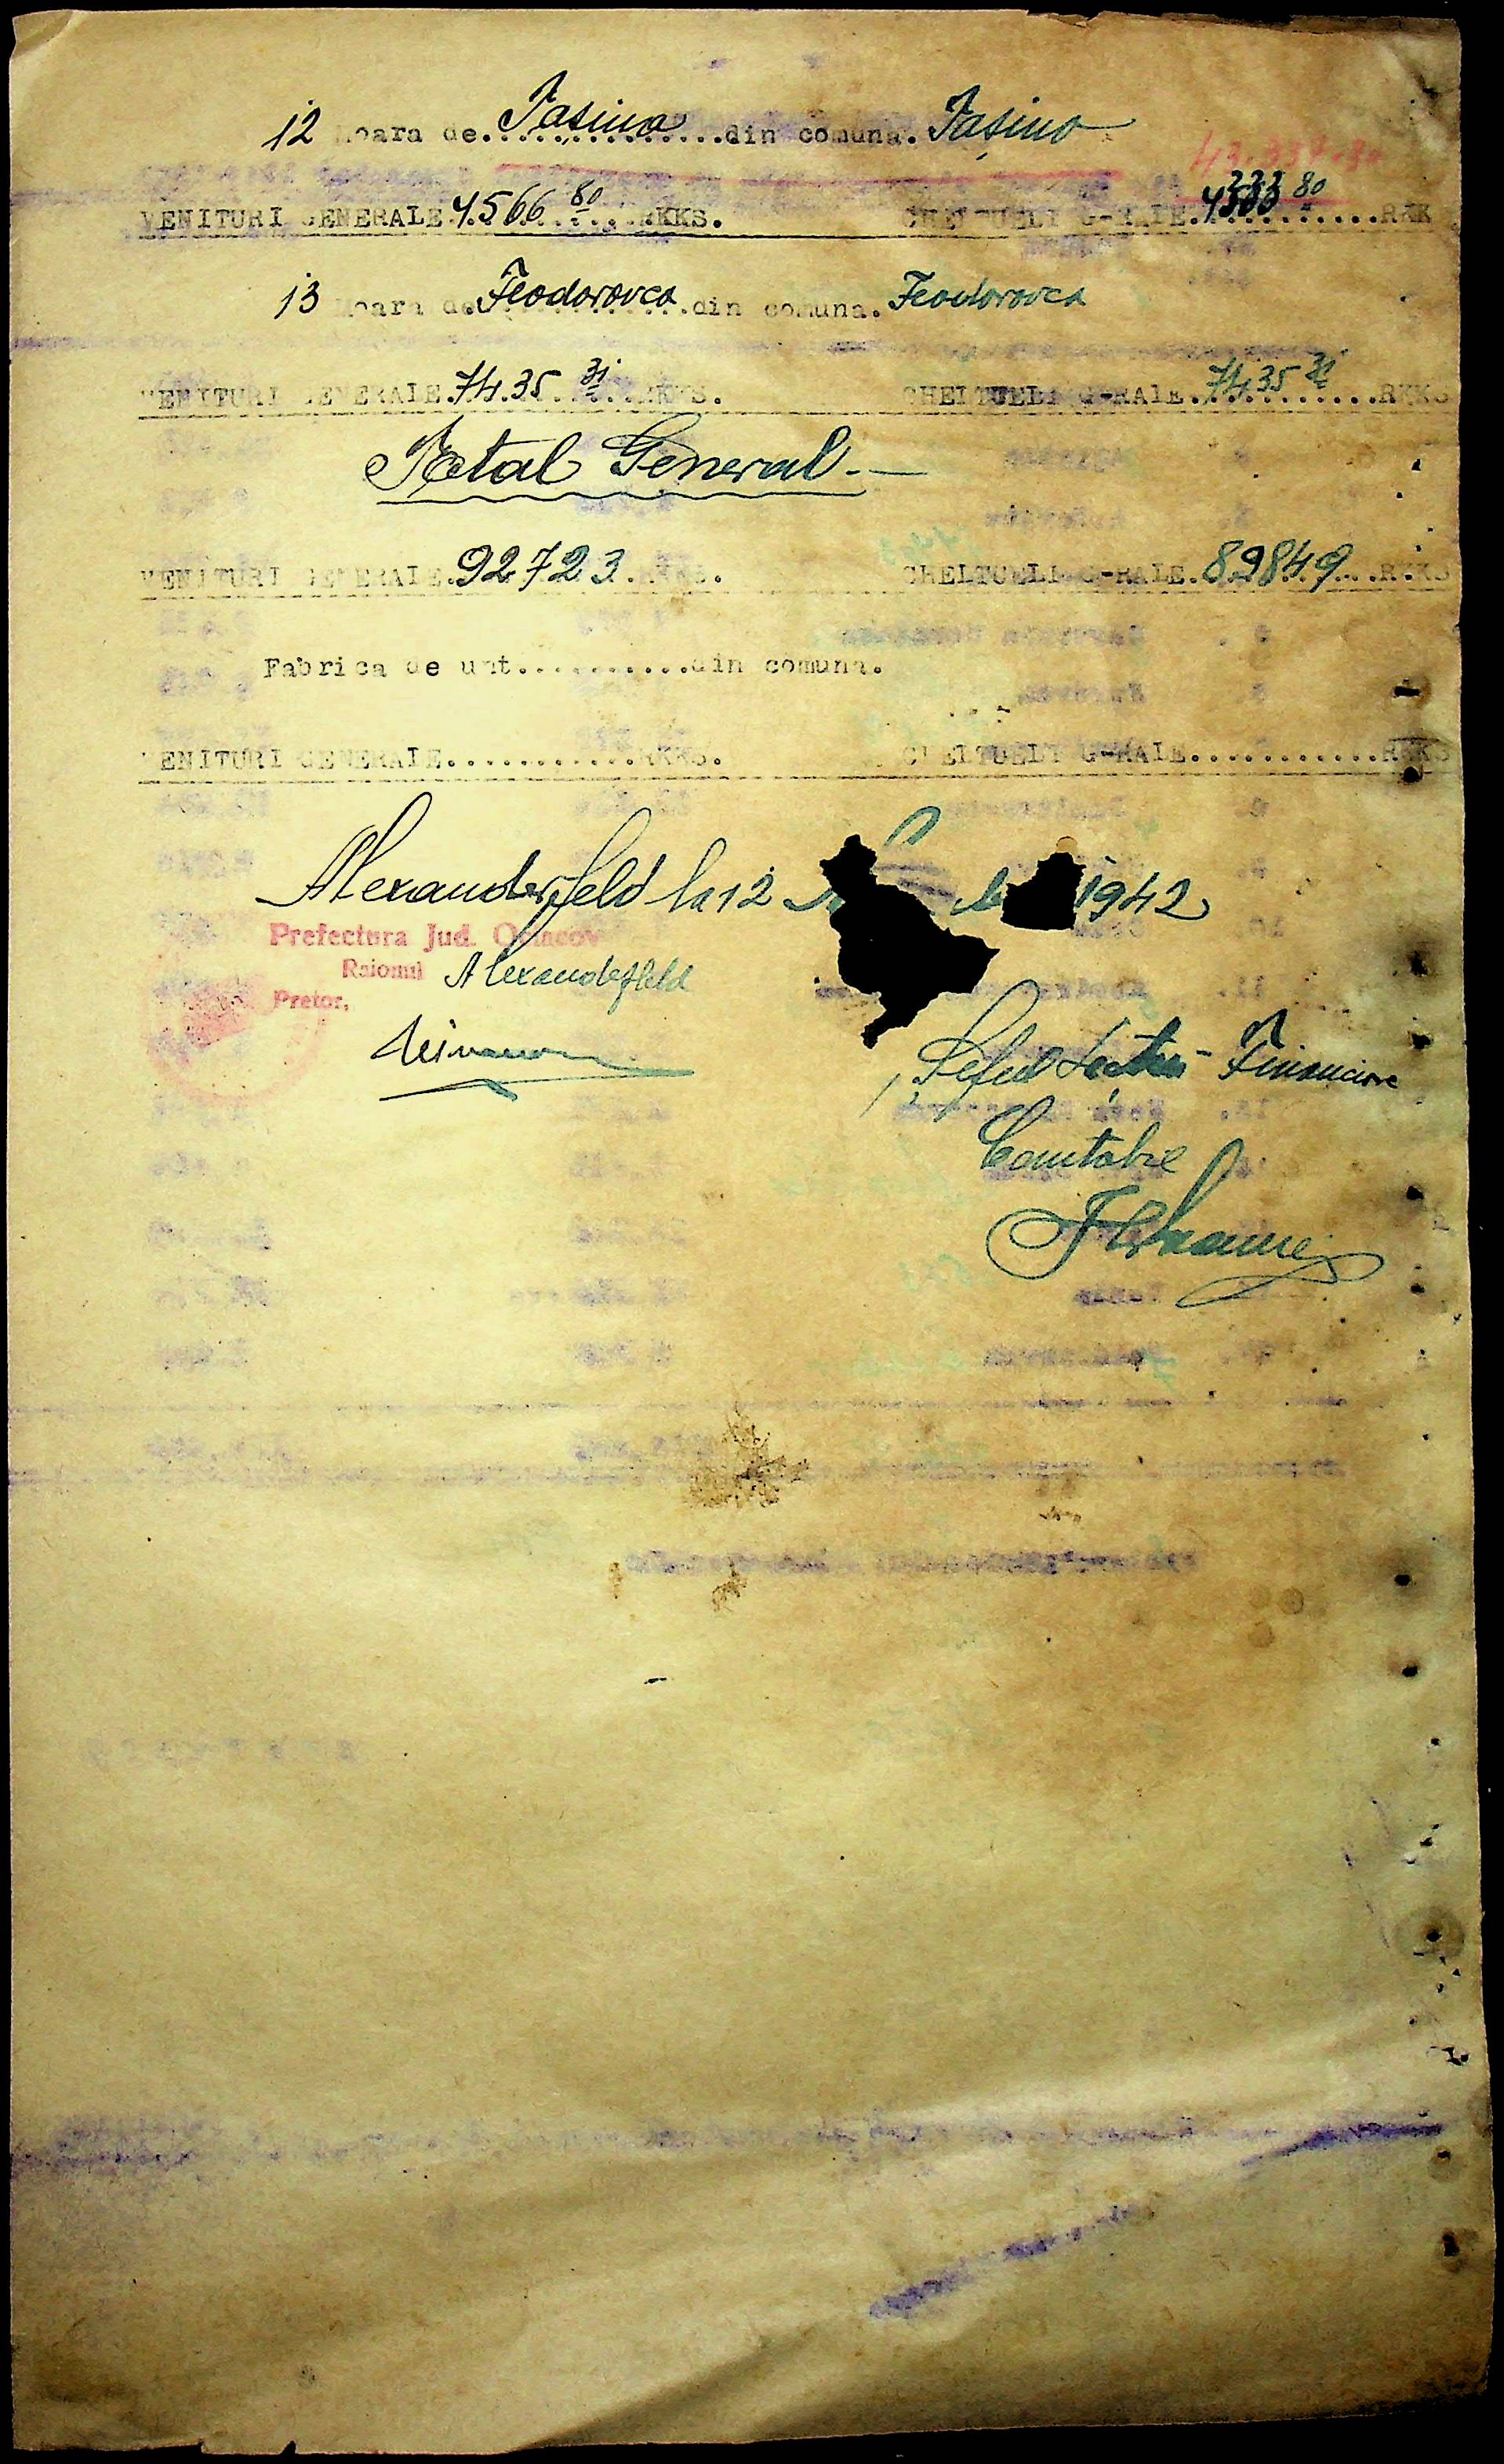 12 Moara de. Iasina ...din comuna. Iașino
43.337.80
VENITURI GENERALE 4566 80 ...RKKS. CHELTUELI G-RALE. 333 80 ...RKK
13 Moara de Feodorovca ...din comuna. Feodorovca
VENITURI GENERALE. 7435 31 ...RKKS. CHELTUELI G-RALE. 7435 31 ...RKKS
Total General.—
VENITURI GENERALE. 92723. RKKS. CHELTUELI G-RALE. 89849 ...RKKS
Fabrica de unt............din comuna.
VENITURI GENERALE.............RKKS. CHELTUELI G-RALE.............RKKS
Alexanderfeld la 12 1942
Prefectura Jud. Oceacov
Raionul Alexanderfeld
Pretor,
Șeful Secției Financiare
Contabil